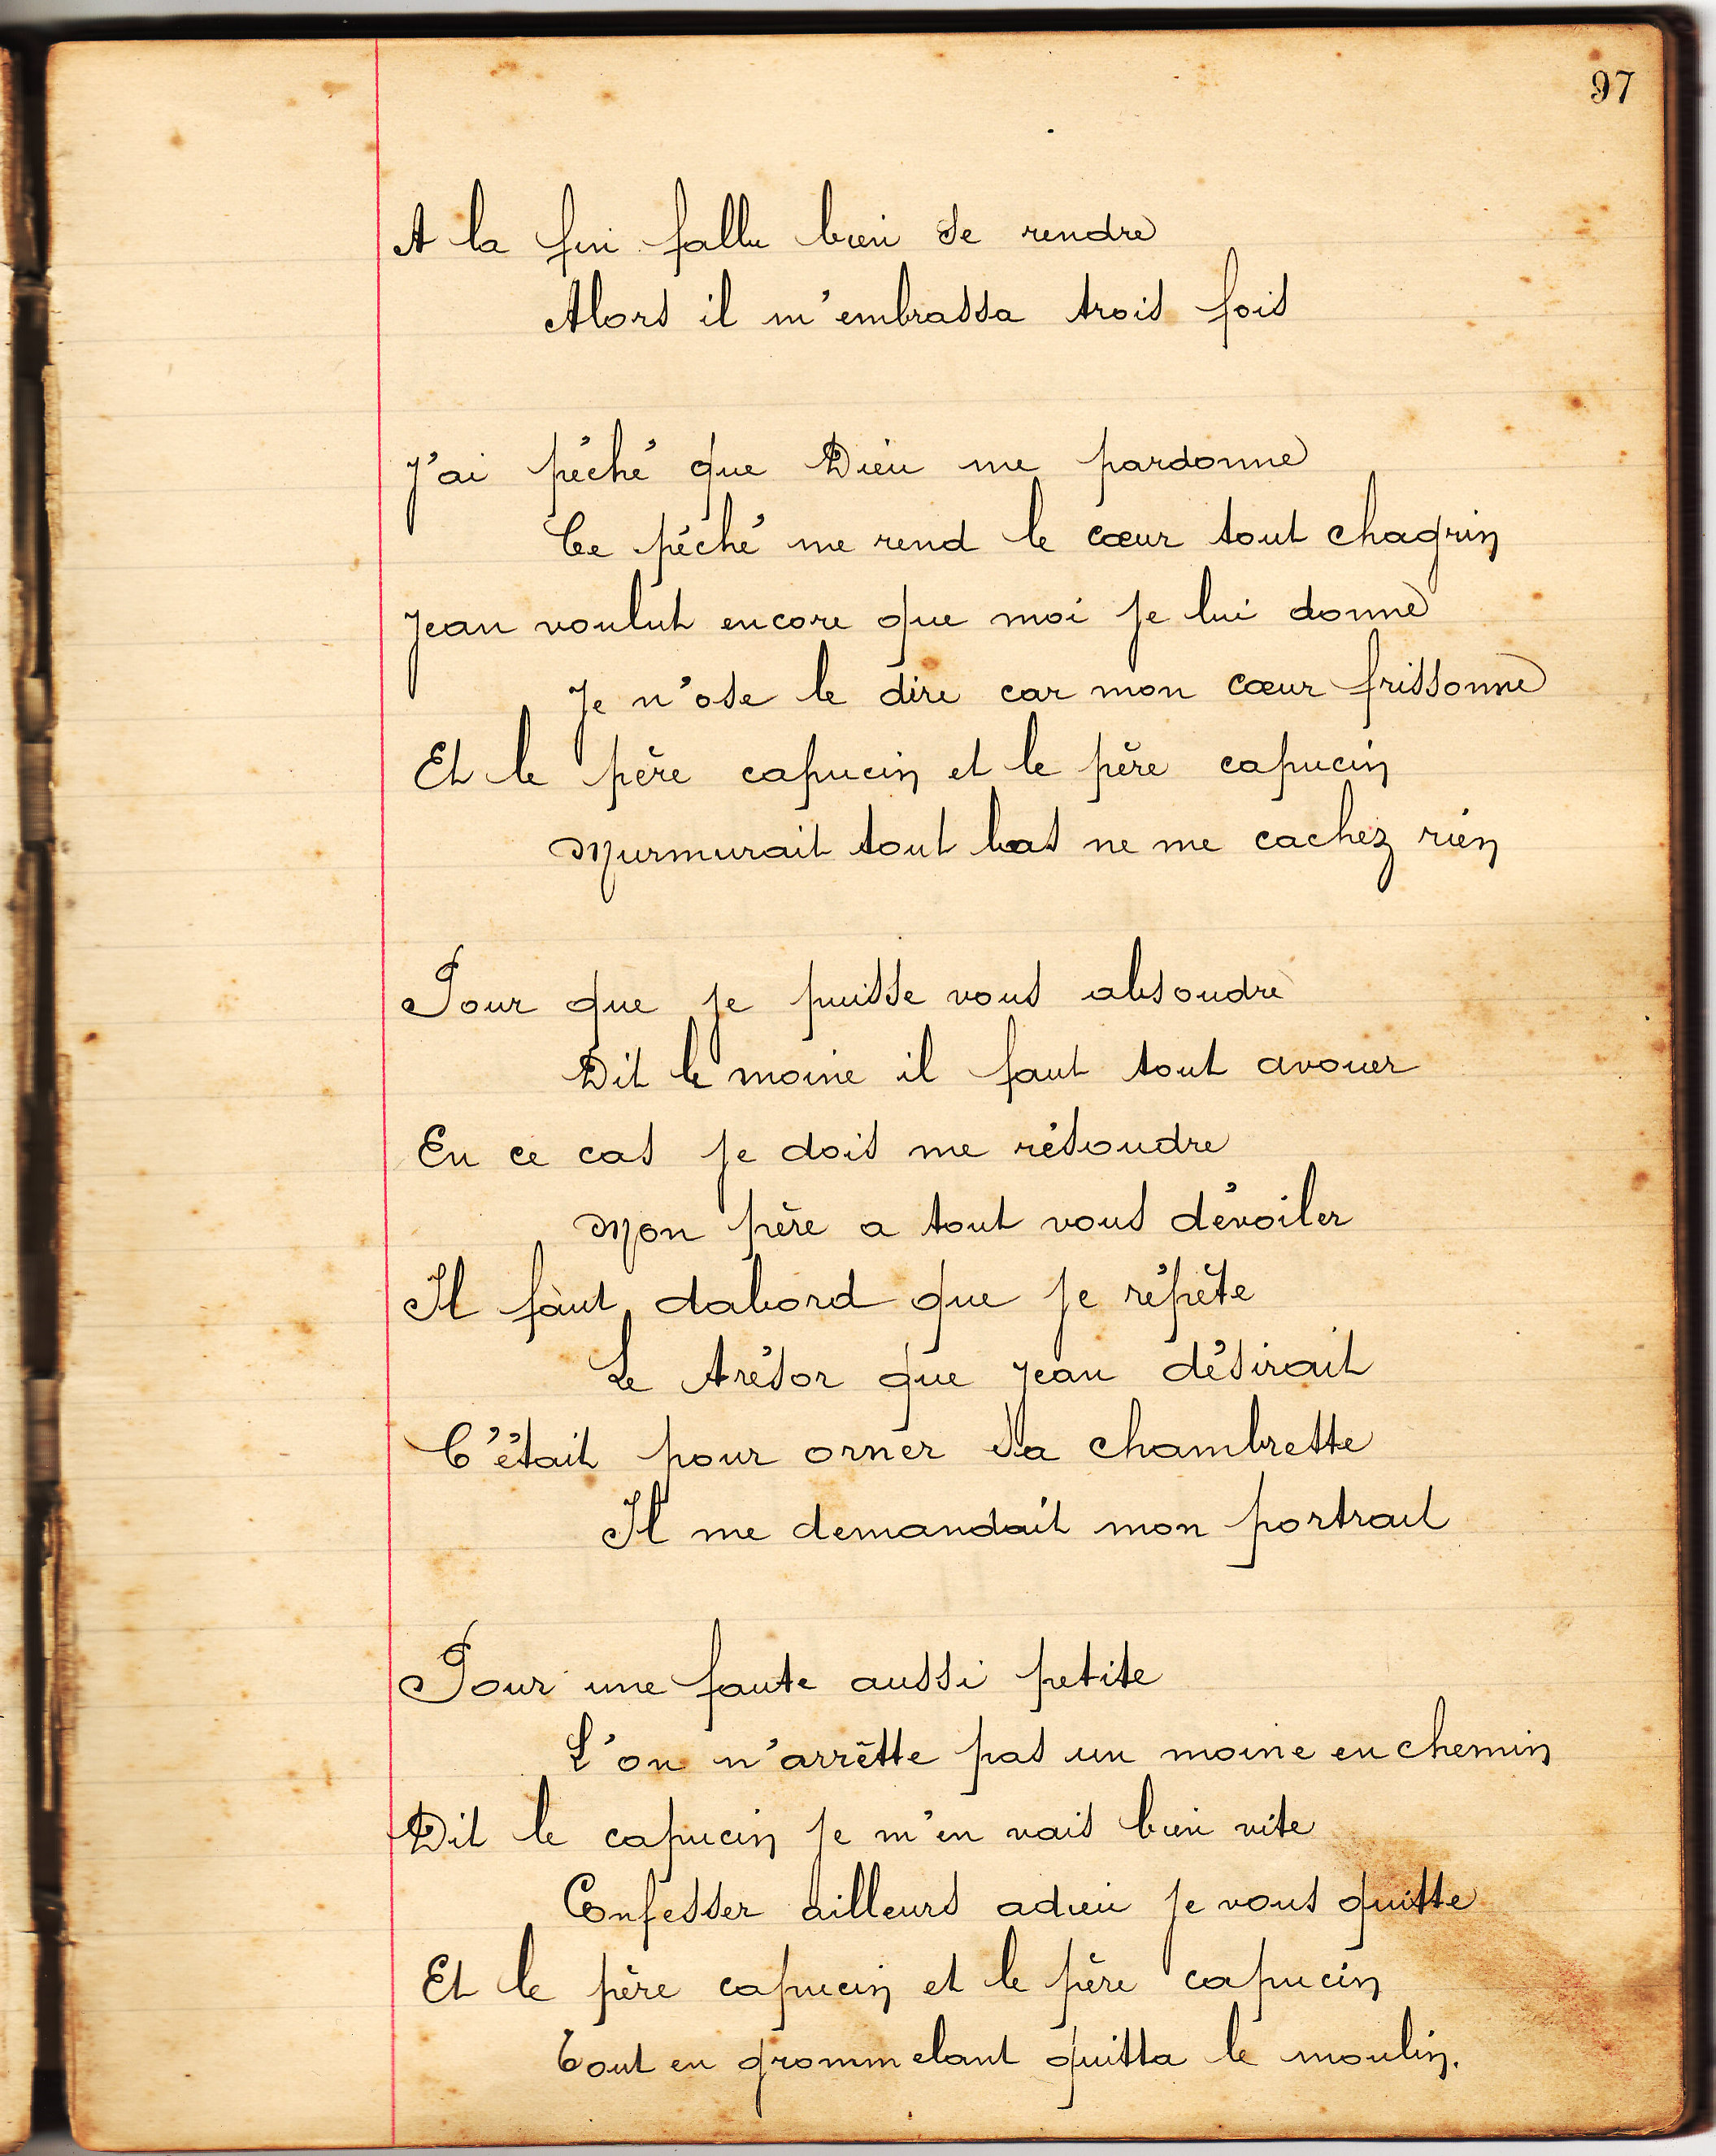 97
A la fin fallu bien se rendre
Alors il m'embrassa trois fois
J'ai péché que Dieu me pardonne
Ce péché me rend le cœur tout chagrin
Jean voulut encore que moi je lui donne
Je n'ose le dire car mon cœur frissonne
Et le père capucin et le père capucin
Murmurait tout bas ne me cachez rien
Pour que je puisse vous absoudre
Dit le moine il faut tout avouer
En ce cas je dois me résoudre
Mon père a tout vous dévoiler
Il faut dabord que je répète
Le trésor que Jean désirait
C'était pour orner sa chambrette
Il me demandait mon portrait
Pour une faute aussi petite
L'on n'arrêtte pas un moine en chemin
Dit le capucin je m'en vais bien vite
Confesser ailleurs adieu je vous quitte
Et le père capucin et le père capucin
Tout en grommelant quitta le moulin.